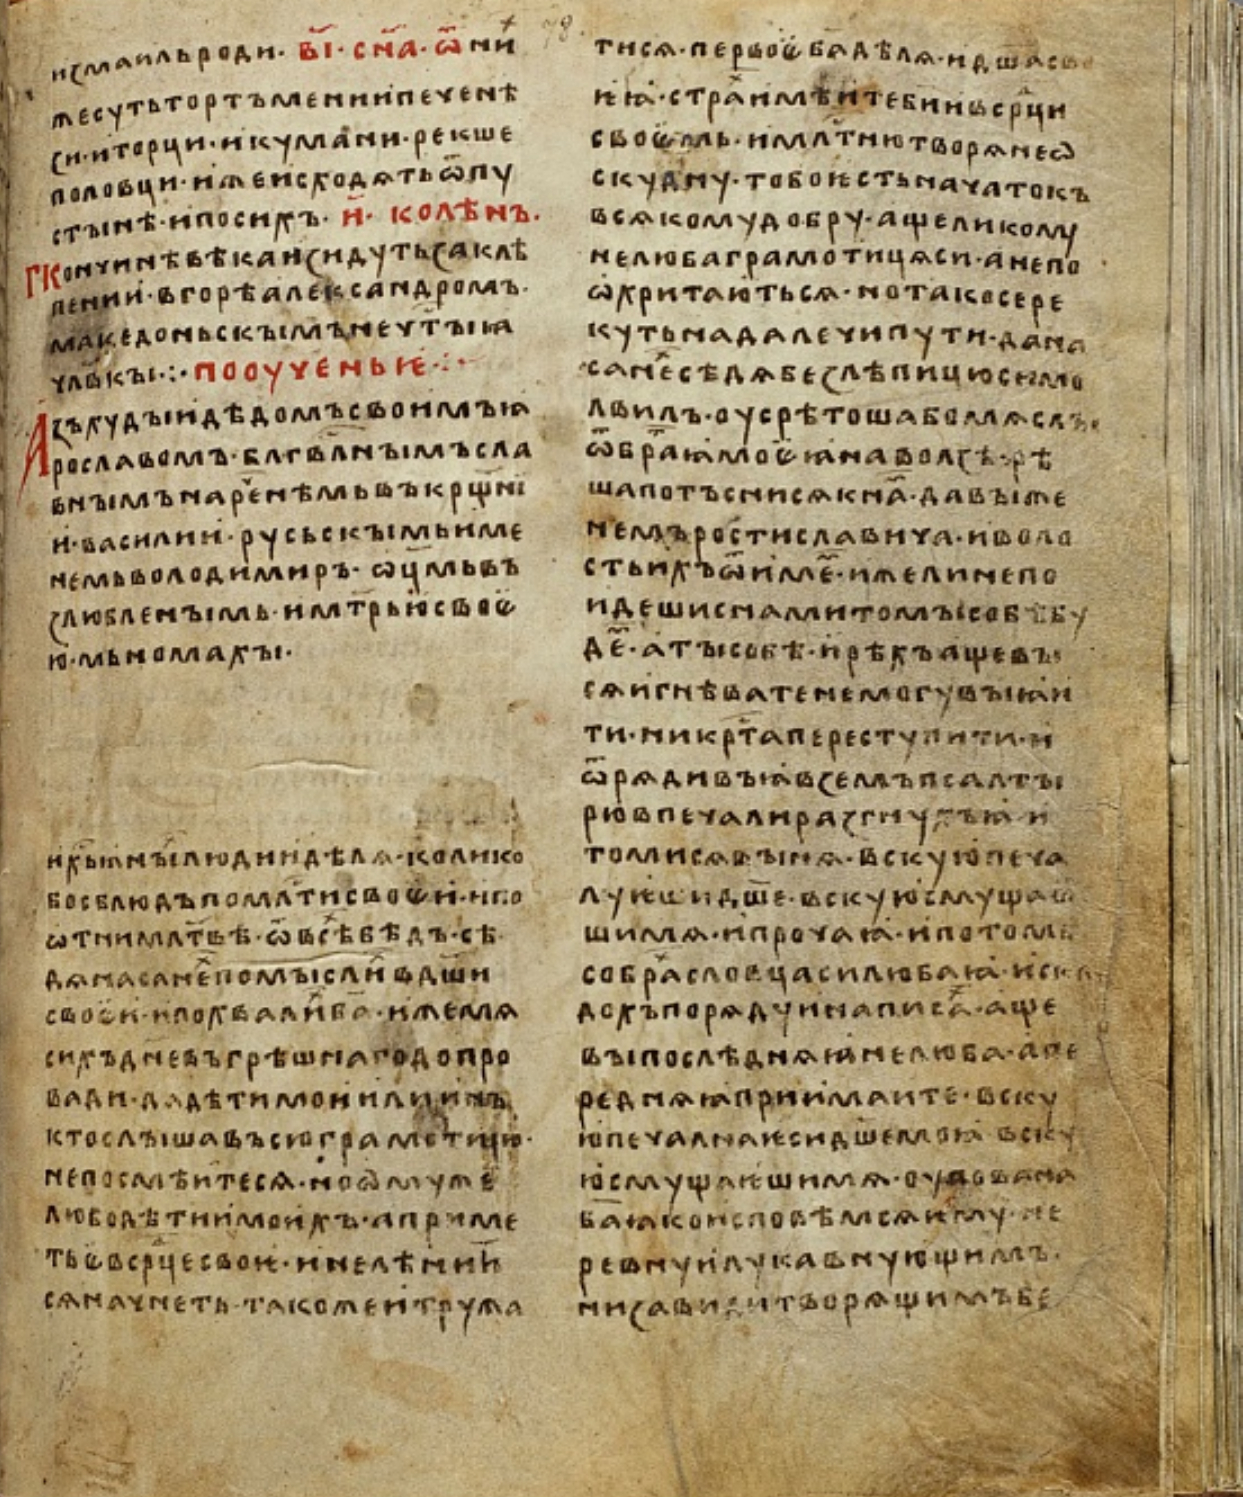 78
исмаильроди· в҃і·сн҃а·ѿни
жесутьтортъменииипеченѣ
зи·иторци·икумани·рекше
половци·ижеисходѧтьѿпу
стынѣ·ипосихъ·и҃·колѣнъ·
Гкончинѣвѣкаизидутьзаклѣ
пении·вгорѣалександромъ·
македоньскымънечт҃ыꙗ
члв҃кы·:·поѹченьѥ·:·
Азъхудыидѣдомъсвоимъꙗ
рославомъ·блгв҃лнымъсла
внымънарⷭ҇енѣмьвъкрщ҃ні
и·василии·русьскымьиме
немьволодимиръ·ѡц҃мьвъ
злюбленымь·имт҃рьюсвоѥ
ю·мьномахы·
ихрⷭ҇ьꙗныⷯлюдиидѣлѧ·колико
босблюдъпомлⷭ҇тисвоѥи·ипо
ѡтнимлт҃вѣ·ѿвсѣхбѣдъ·сѣ
дѧнасанехⷯпомыслиⷯвдш҃и
своѥи·ипохвалиⷯба҃·ижемѧ
сихъдн҃евъгрѣшнагодопро
вади·дадѣтимоиилиинъ
ктослышавъсюграмотицю·
непосмѣитесѧ·ноѡмуже
люболѣтиимоихъ·априме
тьѥвсрⷣцесвоѥ·инелѣнии
сѧначнеть·такожеитружа
тисѧ·первоѥба҃дѣлѧ·идш҃асво
ѥꙗ·страⷯимѣитебиивсрⷣци
своѥмь·имлⷭ҇тнютворѧнеѡ
скудну·тобоѥстьначатокъ
всѧкомудобру·ащеликому
нелюбаграмотицѧси·анепо
ѡхритаютьсѧ·нотакосере
кутьнадалечипути·дана
санехⷯсѣдѧбезлѣпицюсимо
лвилъ·оусрѣтошабомѧслъ·
ѿбраⷮꙗмоѥꙗнаволзѣ·рѣ
шапотъснисѧкна҃·давыже
немъростиславича·иволо
стьихъѿимеⷨ·ижелинепо
идешиснамитомысобѣбу
деⷨ·атысобѣ·ирѣхъащевы
сѧигнѣватенемогувыꙗи
ти·никрⷭ҇тапереступити·и
ѿрѧдивъꙗвземъпсалты
рювпечалиразгнухъꙗ·и
томисѧвынѧ·вскуюпеча
луѥшидш҃е·вскуюсмущаѥ
шимѧ·ипрочаꙗ·ипотомь
собраⷯсловцасилюбаꙗ·искла
дохъпорѧдуинаписаⷯ·аще
выпослѣднѧꙗнелюба·апе
реднѧꙗприимаите·вску
юпечалнаѥсидш҃емоꙗвску
юсмущаѥшимѧ·оуповаина
ба҃ꙗкоисповѣмсѧѥму·не
ревнуилукавнующимъ·
низавидитворѧщимъбе